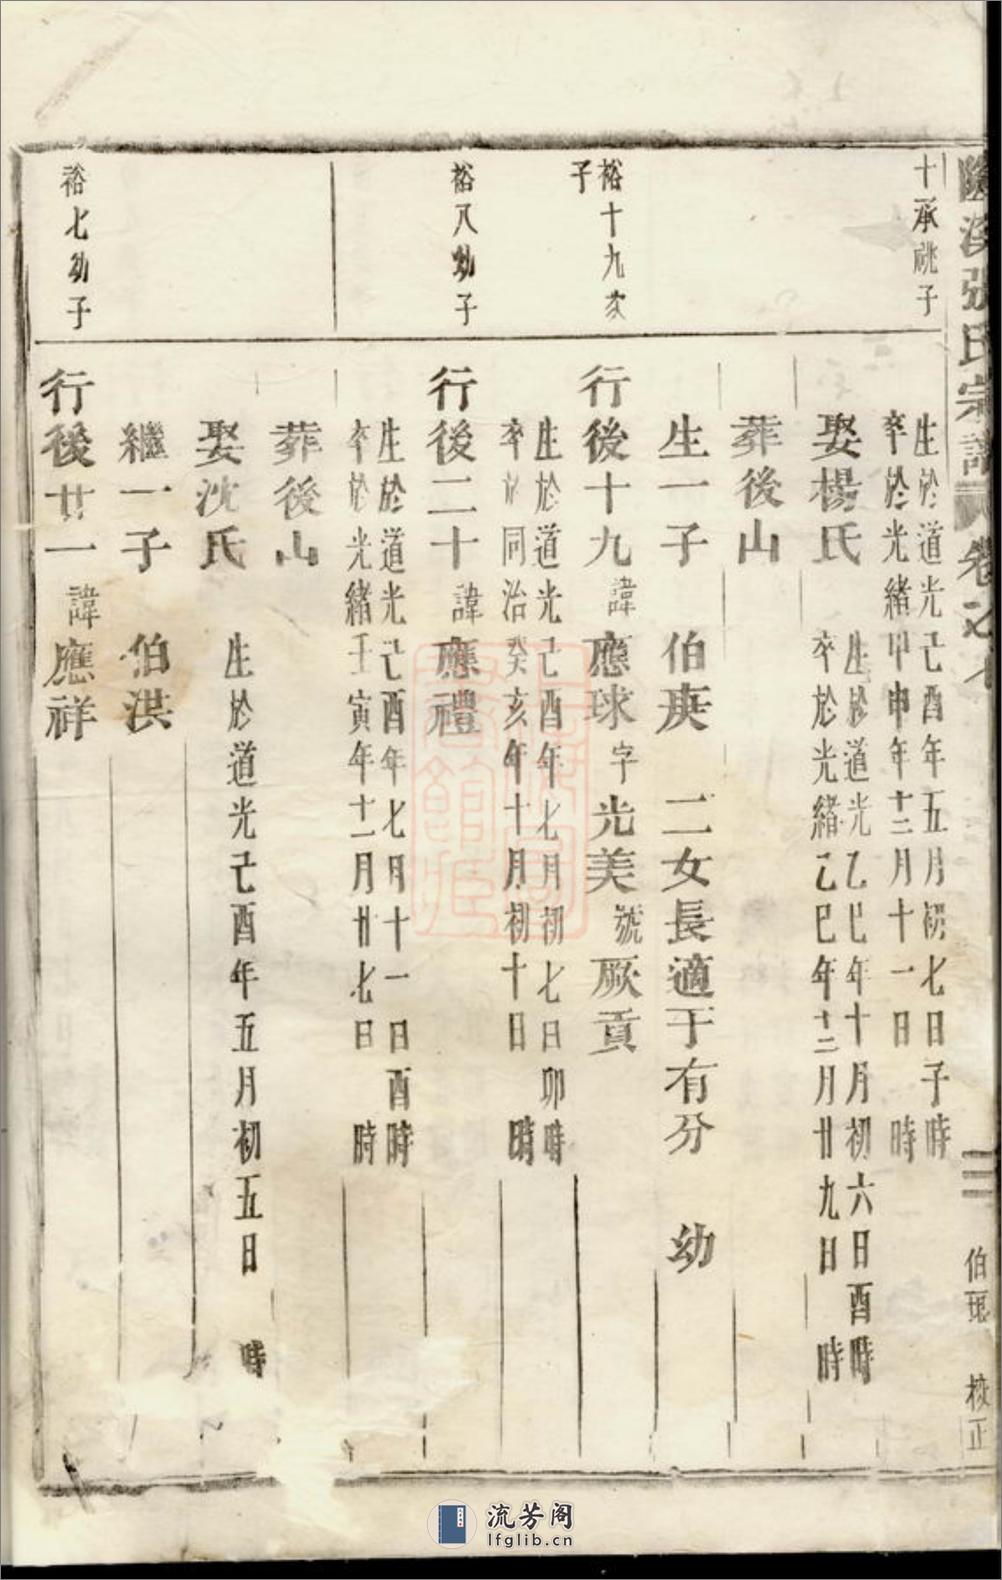 張氏宗譜 卷之
伯琨 校正
十承祧子
生於道光己酉年五月初七日子時
卒於光緒甲申年十二月十一日 時
娶楊氏
生於道光乙巳年十月初六日酉時
卒於光緒乙巳年十二月廿九日 時
葬後山
生一子 伯庚 二女長適于有分 幼
裕十九次
子
行後十九 諱應球 字光美 號厥貢
生於道光己酉年七月初七日卯時
卒於同治癸亥年十月初十日 時
裕八幼子
行後二十 諱應禮
生於道光己酉年七月十一日酉時
卒於光緒壬寅年十一月廿七日 時
葬後山
娶沈氏
生於道光己酉年五月初五日 時
繼一子 伯洪
裕七幼子
行後廿一 諱應祥
流芳阁
lfglib.cn